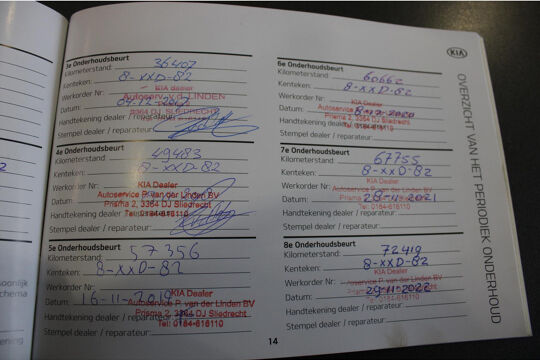 3e Onderhoudsbeurt
Kilometerstand: 36407
Kenteken: 8-XXD-82
KIA Dealer
Werkorder Nr:
Autoservice v.d. LINDEN
Datum:
3364 DJ SLIEDRECHT
Handtekening dealer / reparateur:
Stempel dealer / reparateur:
4e Onderhoudsbeurt
Kilometerstand: 49483
Kenteken: 8-XXD-82
KIA Dealer
Werkorder Nr:
Autoservice P. van der Linden BV
Datum:
Prisma 2, 3364 DJ Sliedrecht
Handtekening dealer / reparateur:
Tel: 0184-616110
Stempel dealer / reparateur:
5e Onderhoudsbeurt
Kilometerstand: 57356
Kenteken: 8-XXD-82
Werkorder Nr:
KIA Dealer
Datum: 16-11-2019
Autoservice P. van der Linden BV
Prisma 2, 3364 DJ Sliedrecht
Handtekening dealer / reparateur:
Tel: 0184-616110
Stempel dealer / reparateur:
6e Onderhoudsbeurt
Kilometerstand: 60662
Kenteken: 8-XXD-82
Werkorder Nr:
KIA Dealer
Datum:
Prisma 2, 3364 DJ Sliedrecht
Handtekening dealer / reparateur:
Tel: 0184-616110
Stempel dealer / reparateur:
7e Onderhoudsbeurt
Kilometerstand: 67755
Kenteken: 8-XXD-82
Werkorder Nr:
KIA Dealer
Autoservice P. van der Linden BV
Datum:
Handtekening dealer / reparateur:
Tel: 0184-616110
Stempel dealer / reparateur:
8e Onderhoudsbeurt
Kilometerstand: 72419
Kenteken: 8-XXD-82
KIA Dealer
Werkorder Nr:
Autoservice P. van der Linden BV
Datum: 29-11-2022
Handtekening dealer / reparateur:
Tel: 0184-616110
Stempel dealer / reparateur:
14
KIA
OVERZICHT VAN HET PERIODIEK ONDERHOUD